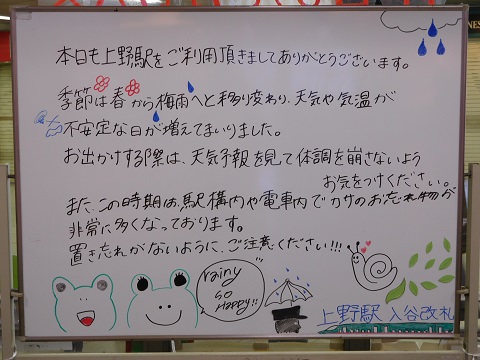 本日も上野駅をご利用頂きましてありがとうございます。
季節は春から梅雨へと移り変わり、天気や気温が
不安定な日が増えてまいりました。
お出かけする際は、天気予報を見て体調を崩さないよう
お気をつけください。
また、この時期は、駅構内や電車内でカサのお忘れ物が
非常に多くなっております。
置き忘れがないように、ご注意ください!!!
rainy
so
Happy!!
上野駅 入谷改札